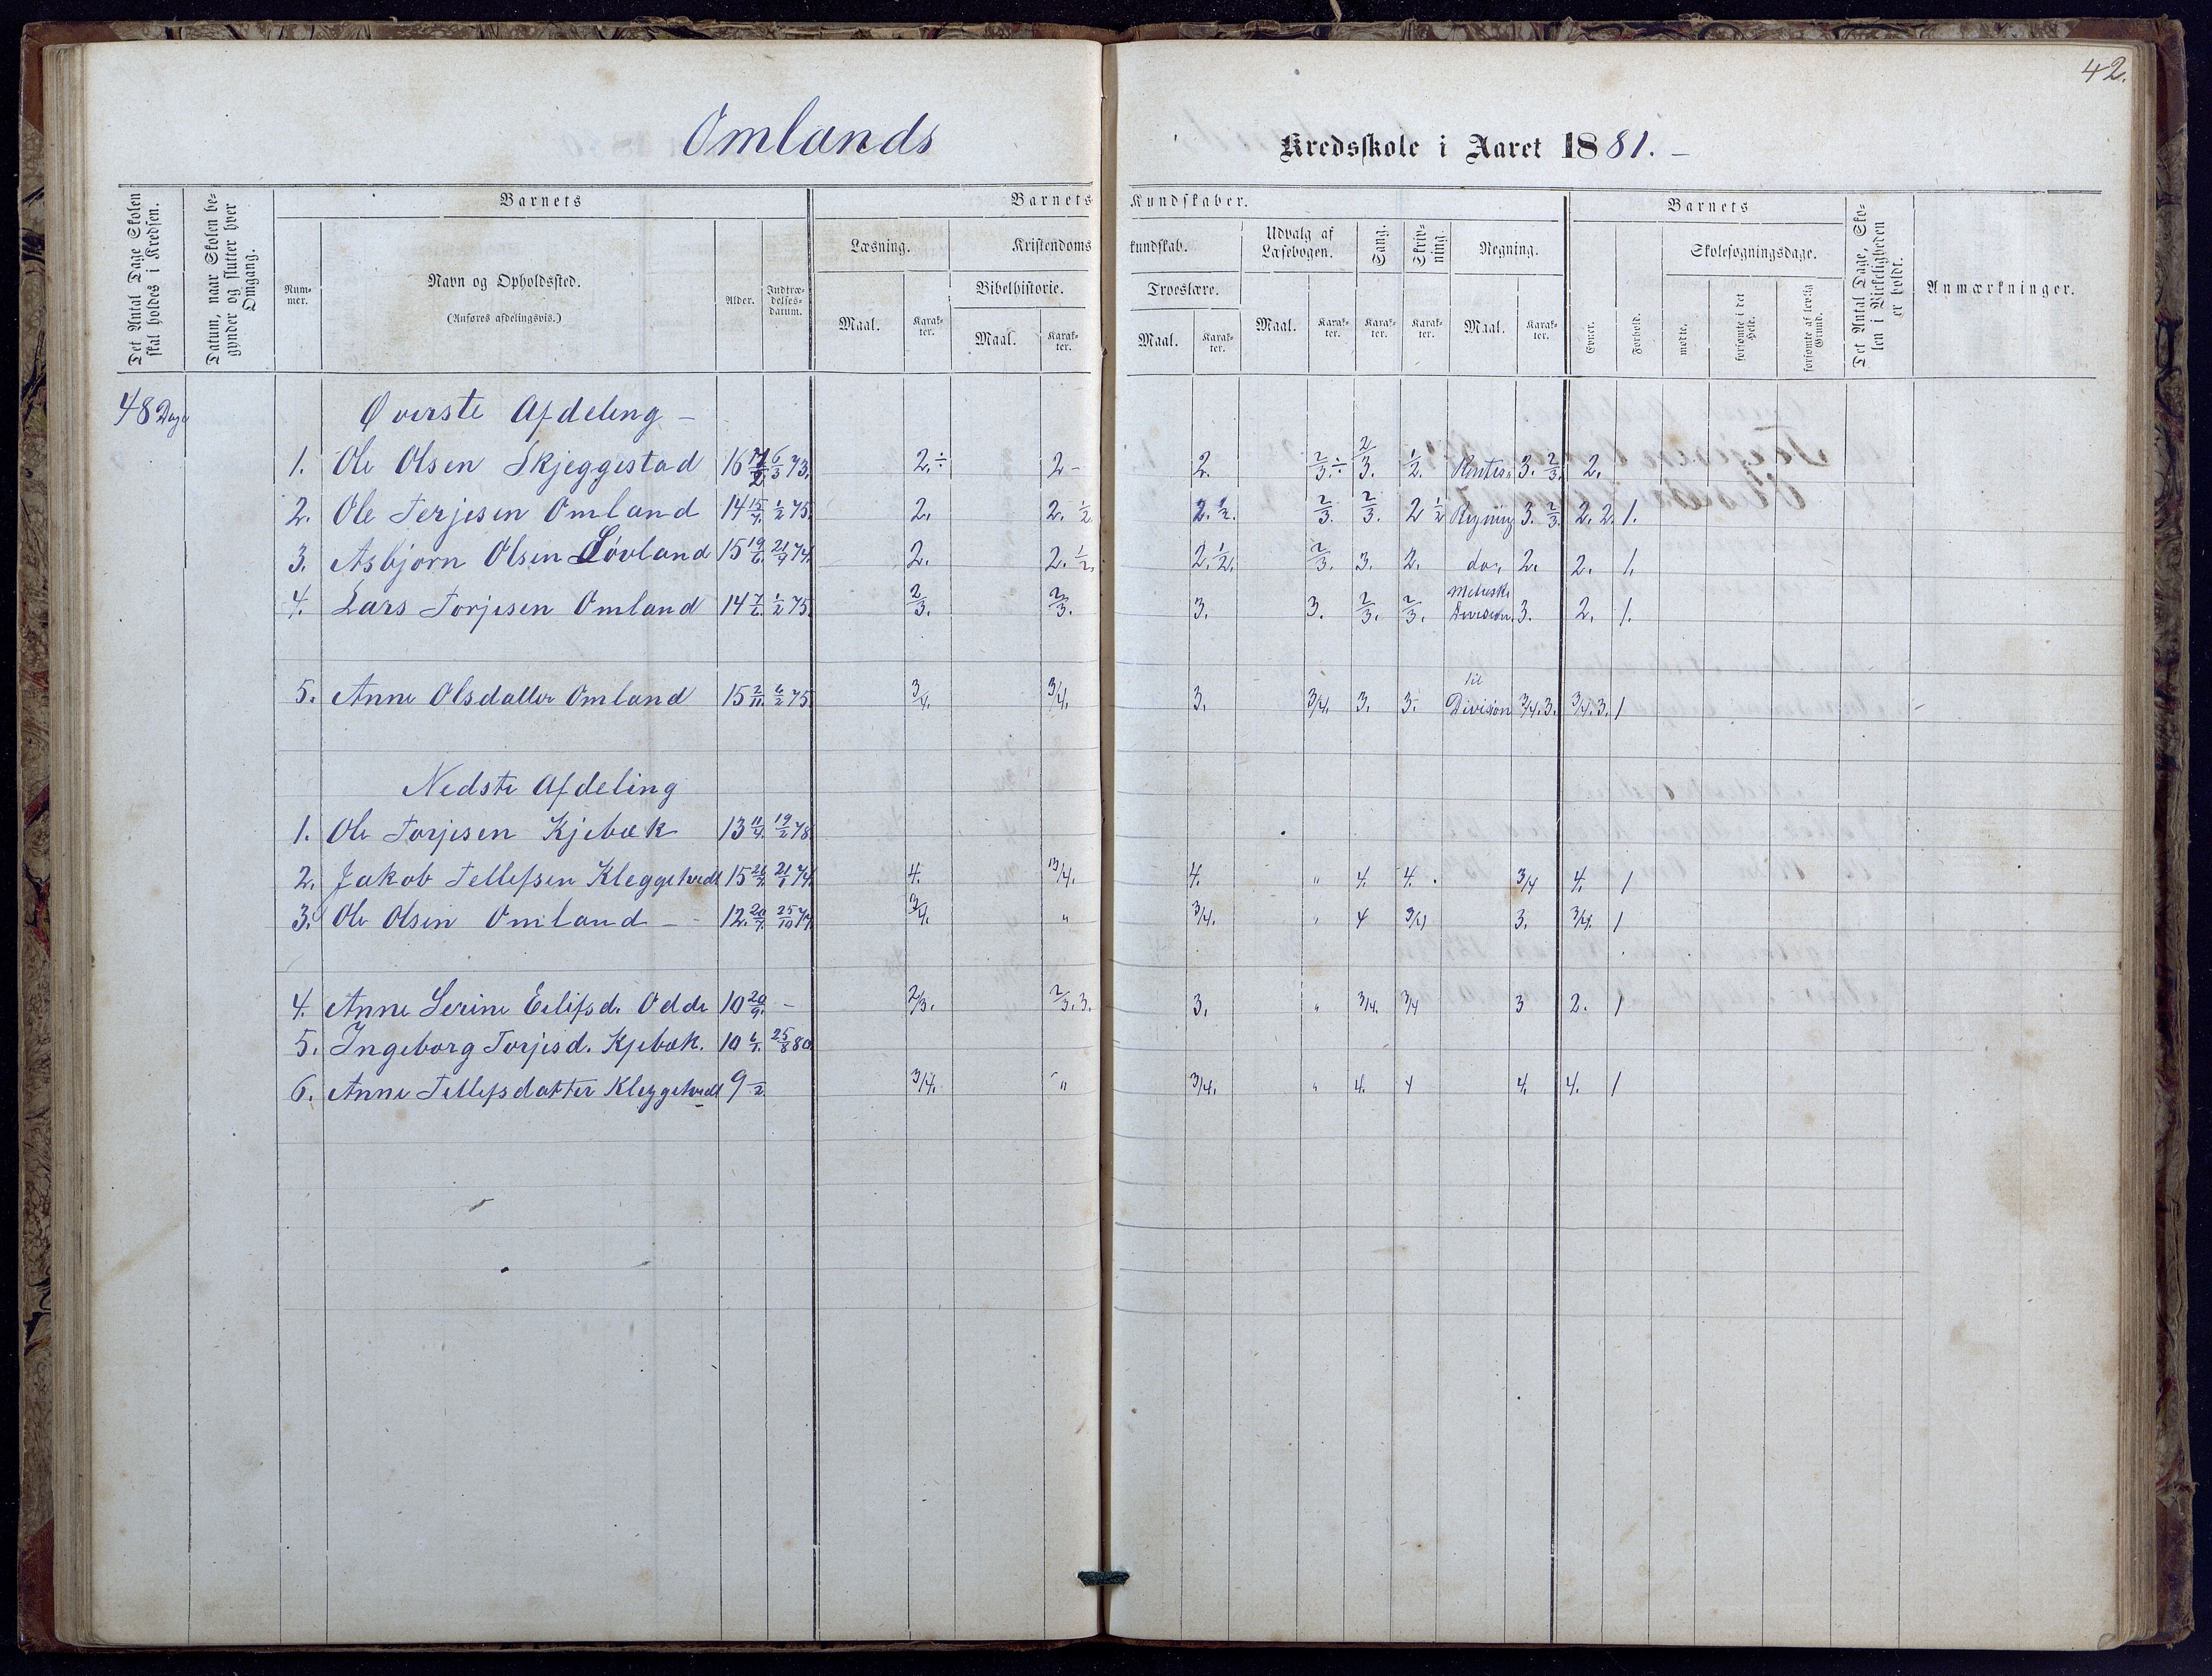 42.
Omlands Kredsskole i Aaret 1881. –
Det Antal Dage Skolen skal holdes i Kredsen.
Datum, naar Skolen begynder og slutter hver Omgang.
Barnets
Nummer.
Navn og Opholdssted.
(Anføres afdelingsvis.)
Alder.
Indtrædelsesdatum.
Barnets Kundskaber.
Læsning.
Maal. Karakter.
Kristendomskundskab.
Bibelhistorie.
Maal. Karakter.
Troeslære.
Maal. Karakter.
Udvalg af Læsebogen.
Maal. Karakter.
Sang.
Karakter.
Skrivning.
Karakter.
Regning.
Maal. Karakter.
Barnets
Evner.
Forhold.
Skolesøgningsdage.
mødte.
forsømte i det Hele.
forsømte af lovlig Grund.
Det Antal Dage, Skolen i Virkeligheden er holdt.
Anmærkninger.
48 Dage
Øverste Afdeling –
1. Ole Olsen Skjeggestad 16 6/3 73. 2.÷ 2- 2. 2/3÷ 2/3. 1/2. 3. 2/3. 2.
2. Ole Terjesen Omland 14 15/4. 1/2 75. 2. 2. 1/2 2. 1/2. 2/3. 2/3. 2 1/2 Regning 3. 2/3. 2. 2. 1.
3. Asbjørn Olsen Løvland 15 19/6. 74. 2. 2. 1/2. 2. 1/2. 2/3. 3. 2. do. 2. 2. 1.
4. Lars Torjesen Omland 14 7/6. 1/2 75. 2/3. 2/3. 3. 3. 2/3. 2/3. Division. 3. 2. 1.
5. Anne Olsdatter Omland 15 2/11. 6/2 75. 3/4. 3/4. 3. 3/4. 3. 3. til Division 3/4. 3. 3/4. 3. 1
Nedste Afdeling
1. Ole Torjesen Kjebæk 13 11/4. 19/2 78.
2. Jakob Tellefsen Kleggetvedt 15 74. 4. 4. " 4. 4. 3/4 4. 1
3. Ole Olsen Omland – 12. 20/7. 25/10 3/4. " 3/4. " 4 3/4 3. 3/4. 1
4. Anne Serine Eilifsd. Odde 10 20/9. – 2/3. 2/3. 3. 3. " 3/4. 3/4 3 2. 1
5. Ingeborg Torjesd. Kjebæk. 10 25/8 80.
6. Anne Tellefsdatter Kleggetvedt 9 3/4. " 3/4. " 4. 4 4. 4. 1